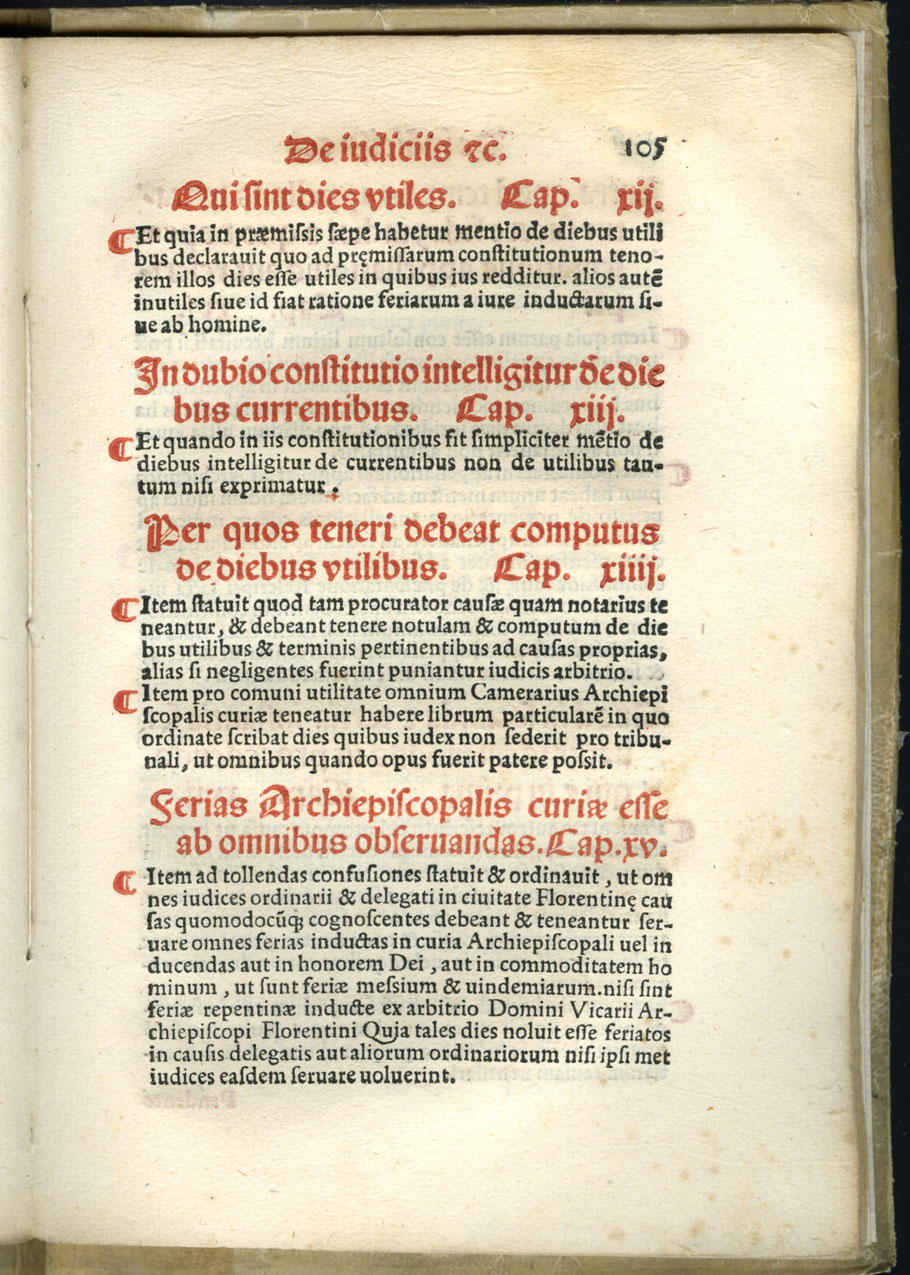 De iudiciis ⁊c. 105
Qui ſint dies vtiles. Cap. xij.
¶ Et quia in præmiſsis ſæpe habetur mentio de diebus utili
bus declarauit quo ad pręmiſſarum conſtitutionum teno-
rem illos dies eſſe utiles in quibus ius redditur. alios autē
inutiles ſiue id fiat ratione feriarum a iure inductarum ſi-
ue ab homine.
In dubio conſtitutio intelligitur de die
bus currentibus. Cap. xiij.
¶ Et quando in iis conſtitutionibus fit ſimpliciter mētio de
diebus intelligitur de currentibus non de utilibus tan-
tum niſi exprimatur.
Per quos teneri debeat computus
de diebus vtilibus. Cap. xiiij.
¶ Item ſtatuit quod tam procurator cauſæ quam notarius te
neantur, & debeant tenere notulam & computum de die
bus utilibus & terminis pertinentibus ad cauſas proprias,
alias ſi negligentes fuerint puniantur iudicis arbitrio.
¶ Item pro comuni utilitate omnium Camerarius Archiepi
ſcopalis curiæ teneatur habere librum particularē in quo
ordinate ſcribat dies quibus iudex non ſederit pro tribu-
nali, ut omnibus quando opus fuerit patere poſsit.
Ferias Archiepiſcopalis curiæ eſſe
ab omnibus obſeruandas. Cap. xv.
¶ Item ad tollendas confuſiones ſtatuit & ordinauit, ut om
nes iudices ordinarii & delegati in ciuitate Florentinę cau
ſas quomodocūqꝫ cognoſcentes debeant & teneantur ſer-
uare omnes ferias inductas in curia Archiepiſcopali uel in
ducendas aut in honorem Dei, aut in commoditatem ho
minum, ut ſunt feriæ meſsium & uindemiarum. niſi ſint
feriæ repentinæ inducte ex arbitrio Domini Vicarii Ar-
chiepiſcopi Florentini Quia tales dies noluit eſſe feriatos
in cauſis delegatis aut aliorum ordinariorum niſi ipſi met
iudices eaſdem ſeruare uoluerint.